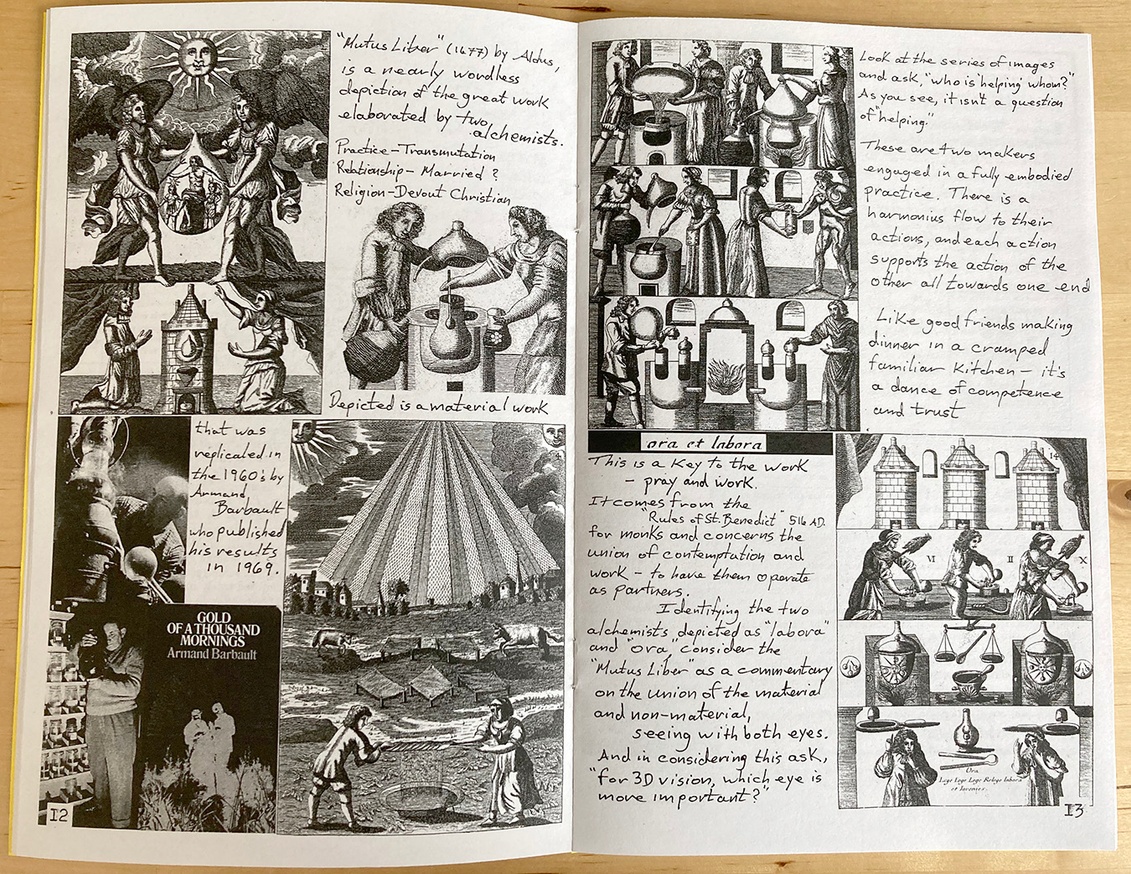 "Mutus Liber" (1677) by Aldus,
is a nearly wordless
depiction of the great work
elaborated by two
alchemists.
Practice-Transmutation
Relationship- Married ?
Religion-Devout Christian
Depicted is a material work
that was
replicated in
the 1960's by
Armand
Barbault
who published
his results
in 1969.
GOLD
OF A THOUSAND
MORNINGS
Armand Barbault
12
Look at the series of images
and ask, "who is 'helping' whom?"
As you see, it isn't a question
of "helping."
These are two makers
engaged in a fully embodied
practice. There is a
harmonius flow to their
actions, and each action
supports the action of the
other all towards one end
Like good friends making
dinner in a cramped
familiar kitchen - it's
a dance of competence
and trust
ora et labora
This is a Key to the work
- pray and work.
It comes from the
"Rules of St. Benedict" 516 AD.
for monks and concerns the
union of contemptation and
work - to have them operate
as partners.
Identifying the two
alchemists depicted as "labora"
and ora, consider the
"Mutus Liber" as a commentary
on the union of the material
and non-material,
seeing with both eyes.
And in considering this ask,
"for 3D vision, which eye is
more important?"
14
VI
II
X
Ora
Lege Lege Lege Relege labora
et Invenies.
13